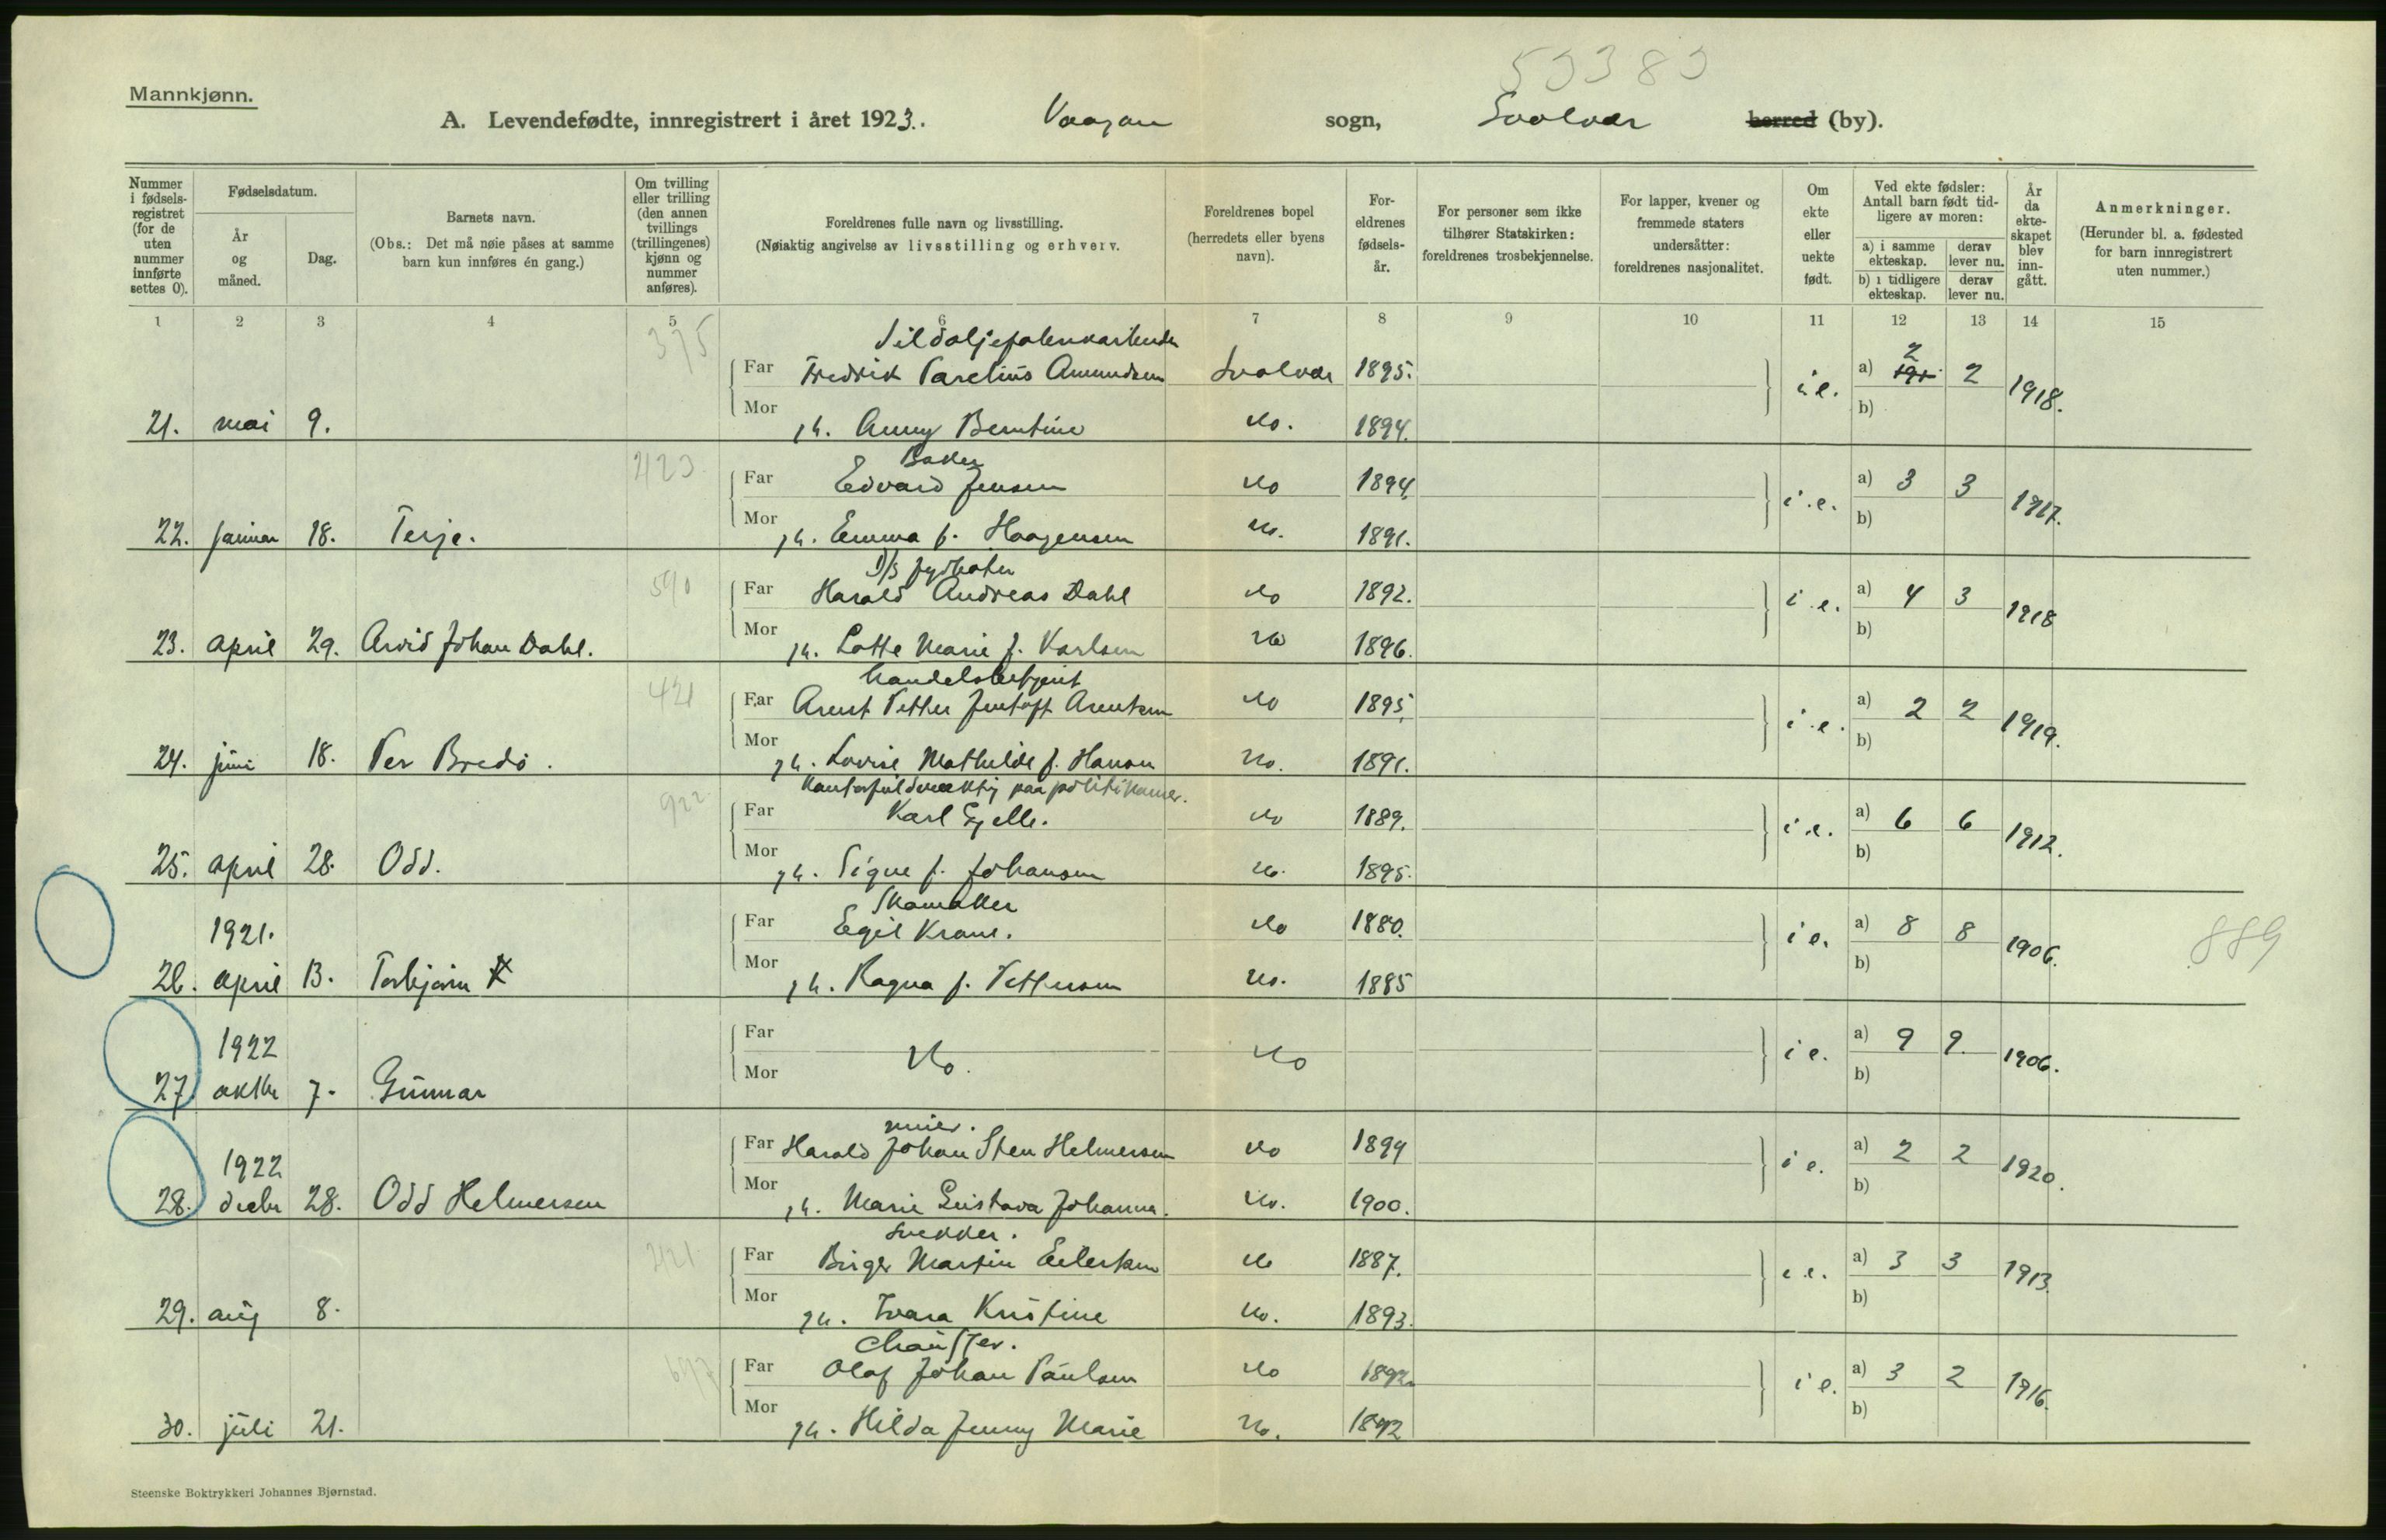 53383
Mannkjønn.
A. Levendefødte, innregistrert i året 1923. Vaagan sogn, Svolvær herred (by).
Nummer i fødsels-registret (for de uten nummer innførte settes 0).
Fødselsdatum.
År og måned.
Dag.
Barnets navn.
(Obs.: Det må nøie påses at samme barn kun innføres én gang.)
Om tvilling eller trilling (den annen tvillings (trillingenes) kjønn og nummer anføres).
Foreldrenes fulle navn og livsstilling.
(Nøiaktig angivelse av livsstilling og erhverv.
Foreldrenes bopel (herredets eller byens navn).
For-eldrenes fødsels-år.
For personer som ikke tilhører Statskirken: foreldrenes trosbekjennelse.
For lapper, kvener og fremmede staters undersåtter: foreldrenes nasjonalitet.
Om ekte eller uekte født.
Ved ekte fødsler: Antall barn født tid-ligere av moren:
a) i samme ekteskap. derav lever nu.
b) i tidligere ekteskap. derav lever nu.
År da ekte-skapet blev inn-gått.
Anmerkninger.
(Herunder bl. a. fødested for barn innregistrert uten nummer.)
1 2 3 4 5 6 7 8 9 10 11 12 13 14 15
375 Sildoljefabrikarbeider
Far Fredrik Parelius Amundsen Svolvær 1895. i e. a) 2 2 1918.
21. mai 9. Mor h. Anny Berntine do. 1894. b)
423 Baker
Far Edvard Jensen do 1894. i. e. a) 3 3 1917.
22. januar 18. Terje. Mor h. Emma f. Haagensen do. 1891. b)
590 D/S fyrbøter
Far Harald Andreas Dahl do 1892. i. e. a) 4 3 1918
23. april 29. Arvid Johan Dahl. Mor h. Lotte Marie f. Karlsen do 1896. b)
421 handelsbetjent
Far Arent Petter Jentoft Arentsen do 1895. i. e. a) 2 2 1919.
24. juni 18. Per Bredo. Mor h. Lovise Mathilde f. Hanson do. 1891. b)
922 Kontorfuldmektig paa politikamer.
Far Karl Gjelle. do 1889. i. e. a) 6 6 1912.
25. april 28. Odd. Mor h. Signe f. Johansen do. 1895. b)
Skomaker
1921. Far Egil Krane. do 1880. i e. a) 8 8 1906. 889
26. april 13. Torbjørn Mor h. Ragna f. Pettersen do. 1885 b)
1922 Far do. do i e. a) 9 9. 1906.
27. oktbr 7. Gunnar Mor b)
murer.
1922 Far Harald Johan Sten Helmersen do 1894 i e. a) 2 2 1920.
28. decbr 28. Odd Helmersen Mor h. Marie Gustava Johanna. do. 1900. b)
421 Snekker.
Far Birger Martin Eilertsen do 1887. i. e. a) 3 3 1913.
29. aug 8. Mor h. Ivara Kristine do. 1893. b)
697 Chauffer.
Far Olaf Johan Paulsen do 1892. i e. a) 3 2 1916.
30. juli 21. Mor h. Hilda Jenny Marie do. 1892 b)
Steenske Boktrykkeri Johannes Bjørnstad.